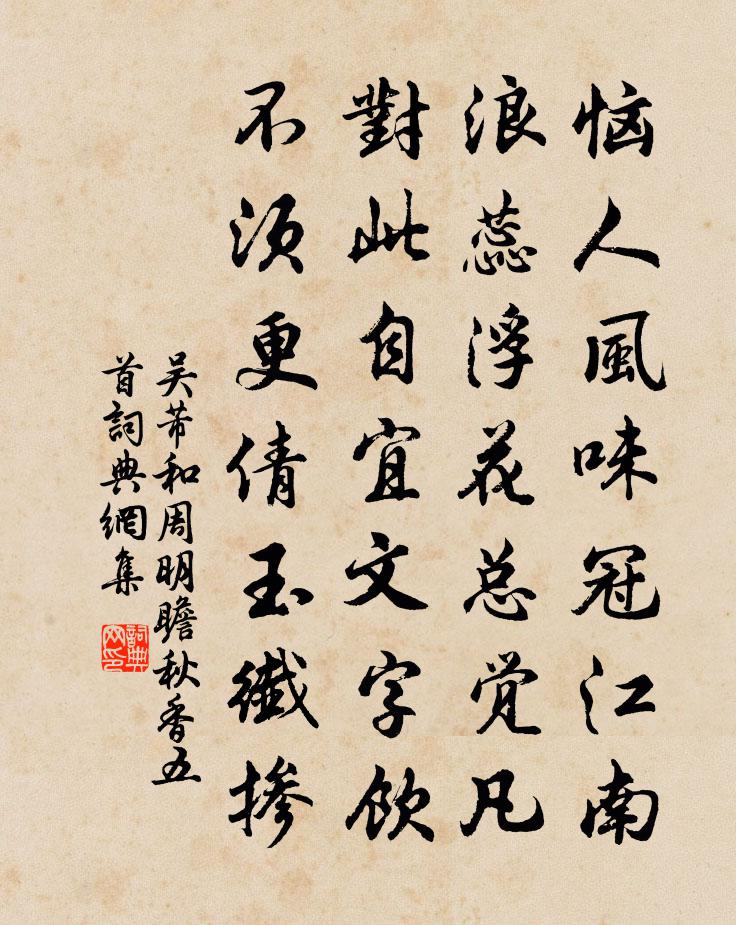 恼人風味冠江南
浪蕊浮花总觉凡
對此自宜文字飲
不须更倩玉纖掺
吴芾和周明瞻秋香五
首詞典網集
詞典
网印